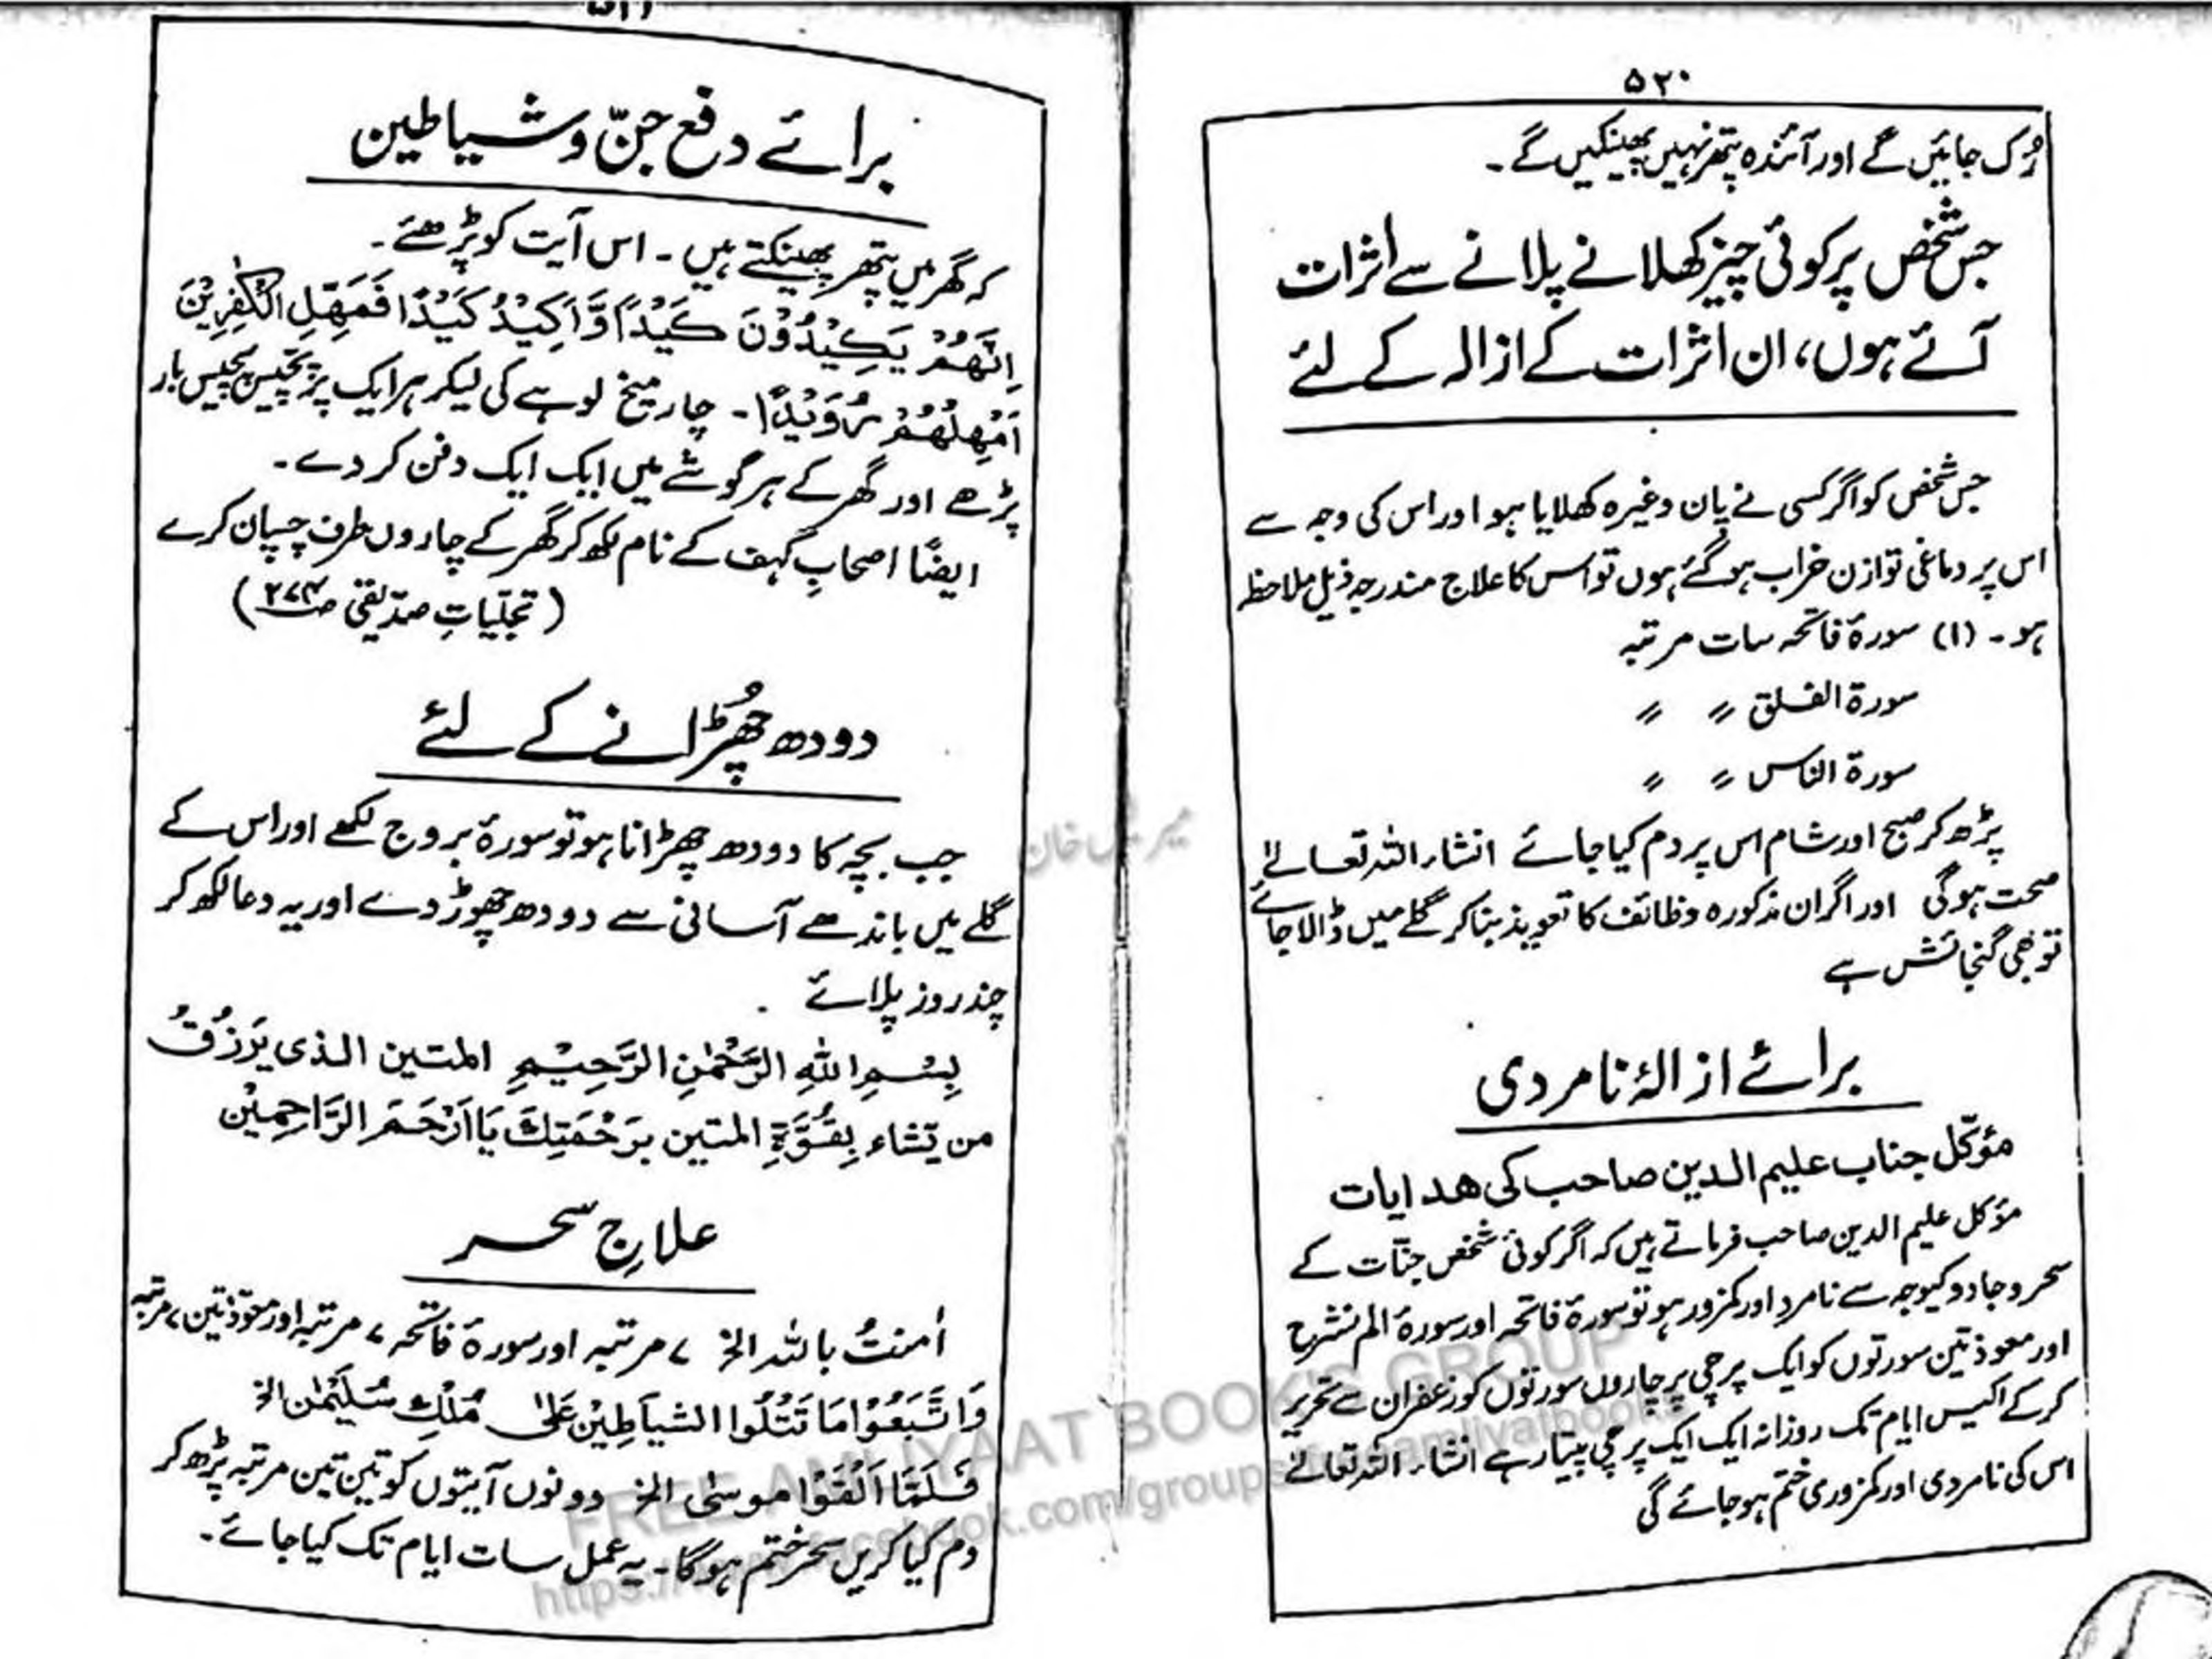 ۵۲۰
رُک جائیں گے اور آئندہ پتھر نہیں پھینکیں گے۔
جس شخص پر کوئی چیز کھلانے پلانے سے اثرات
آئے ہوں، ان اثرات کے ازالہ کے لئے
جس شخص کو اگر کسی نے پان وغیرہ کھلایا ہو اور اس کی وجہ سے
اس پر دماغی توازن خراب ہو گئے ہوں تو اس کا علاج مندرجہ ذیل ملاحظہ
ہو۔ (۱) سورۂ فاتحہ سات مرتبہ
سورۃ الفلق 〃 〃
سورۃ الناس 〃 〃
پڑھ کر صبح اور شام اس پر دم کیا جائے انشاء اللہ تعالےٰ
صحت ہوگی اور اگر ان مذکورہ وظائف کا تعویذ بنا کر گلے میں ڈالا جائے
تو بھی گنجائش ہے
برائے ازالۂ نامردی
مؤکّل جناب علیم الدین صاحب کی ھدایات
مؤکل علیم الدین صاحب فرماتے ہیں کہ اگر کوئی شخص جنّات کے
سحر و جادو کیوجہ سے نامرد اور کمزور ہو تو سورۂ فاتحہ اور سورۂ الم نشرح
اور معوذتین سورتوں کو ایک پرچی پر چاروں سورتوں کو زعفران سے تحریر
کر کے اکیس ایام تک روزانہ ایک ایک پرچی پیتا رہے انشاء اللہ تعالےٰ
اس کی نامردی اور کمزوری ختم ہو جائے گی
برائے دفع جنّ و شیاطین
کہ گھر میں پتھر پھینکتے ہیں۔ اس آیت کو پڑھئے۔
اِنَّهُمْ يَكِيْدُوْنَ كَيْدًا وَّاَكِيْدُ كَيْدًا فَمَهِّلِ الْكٰفِرِيْنَ
اَمْهِلْهُمْ رُوَيْدًا۔ چار میخ لوہے کی لیکر ہر ایک پر پچّیس پچیس بار
پڑھے اور گھر کے ہر گوشے میں ایک ایک دفن کر دے۔
ایضًا اصحابِ کہف کے نام لکھ کر گھر کے چاروں طرف چسپاں کرے
(تجلّیاتِ صدّیقی ص۲۷۴)
دودھ چھُڑانے کے لئے
جب بچہ کا دودھ چھڑانا ہو تو سورۂ بروج لکھے اور اس کے
گلے میں باندھے آسانی سے دودھ چھوڑ دے اور یہ دعا لکھ کر
چند روز پلائے
بِسْمِ اللهِ الرَّحْمٰنِ الرَّحِيْمِ المتین الذی یَرْزُقُ
من یَّشاء بِقُوَّةِ المتین بِرَحْمَتِكَ یَا اَرْحَمَ الرَّاحِمِیْن
علاجِ سحر
اٰمنتُ باللہ الخ ۷ مرتبہ اور سورۃ فاتحہ ۷ مرتبہ اور معوّذتین ۷ مرتبہ
وَاتَّبَعُوْا مَا تَتْلُوا الشیاطِیْن عَلٰی مُلْكِ سُلَیْمٰن الخ
فَلَمَّا اَلْقَوْا موسیٰ الخ دونوں آیتوں کو تین تین مرتبہ پڑھ کر
دم کیا کریں سحر ختم ہوگا۔ یہ عمل سات ایام تک کیا جائے۔
FREE AMLIYAAT BOOKS GROUP